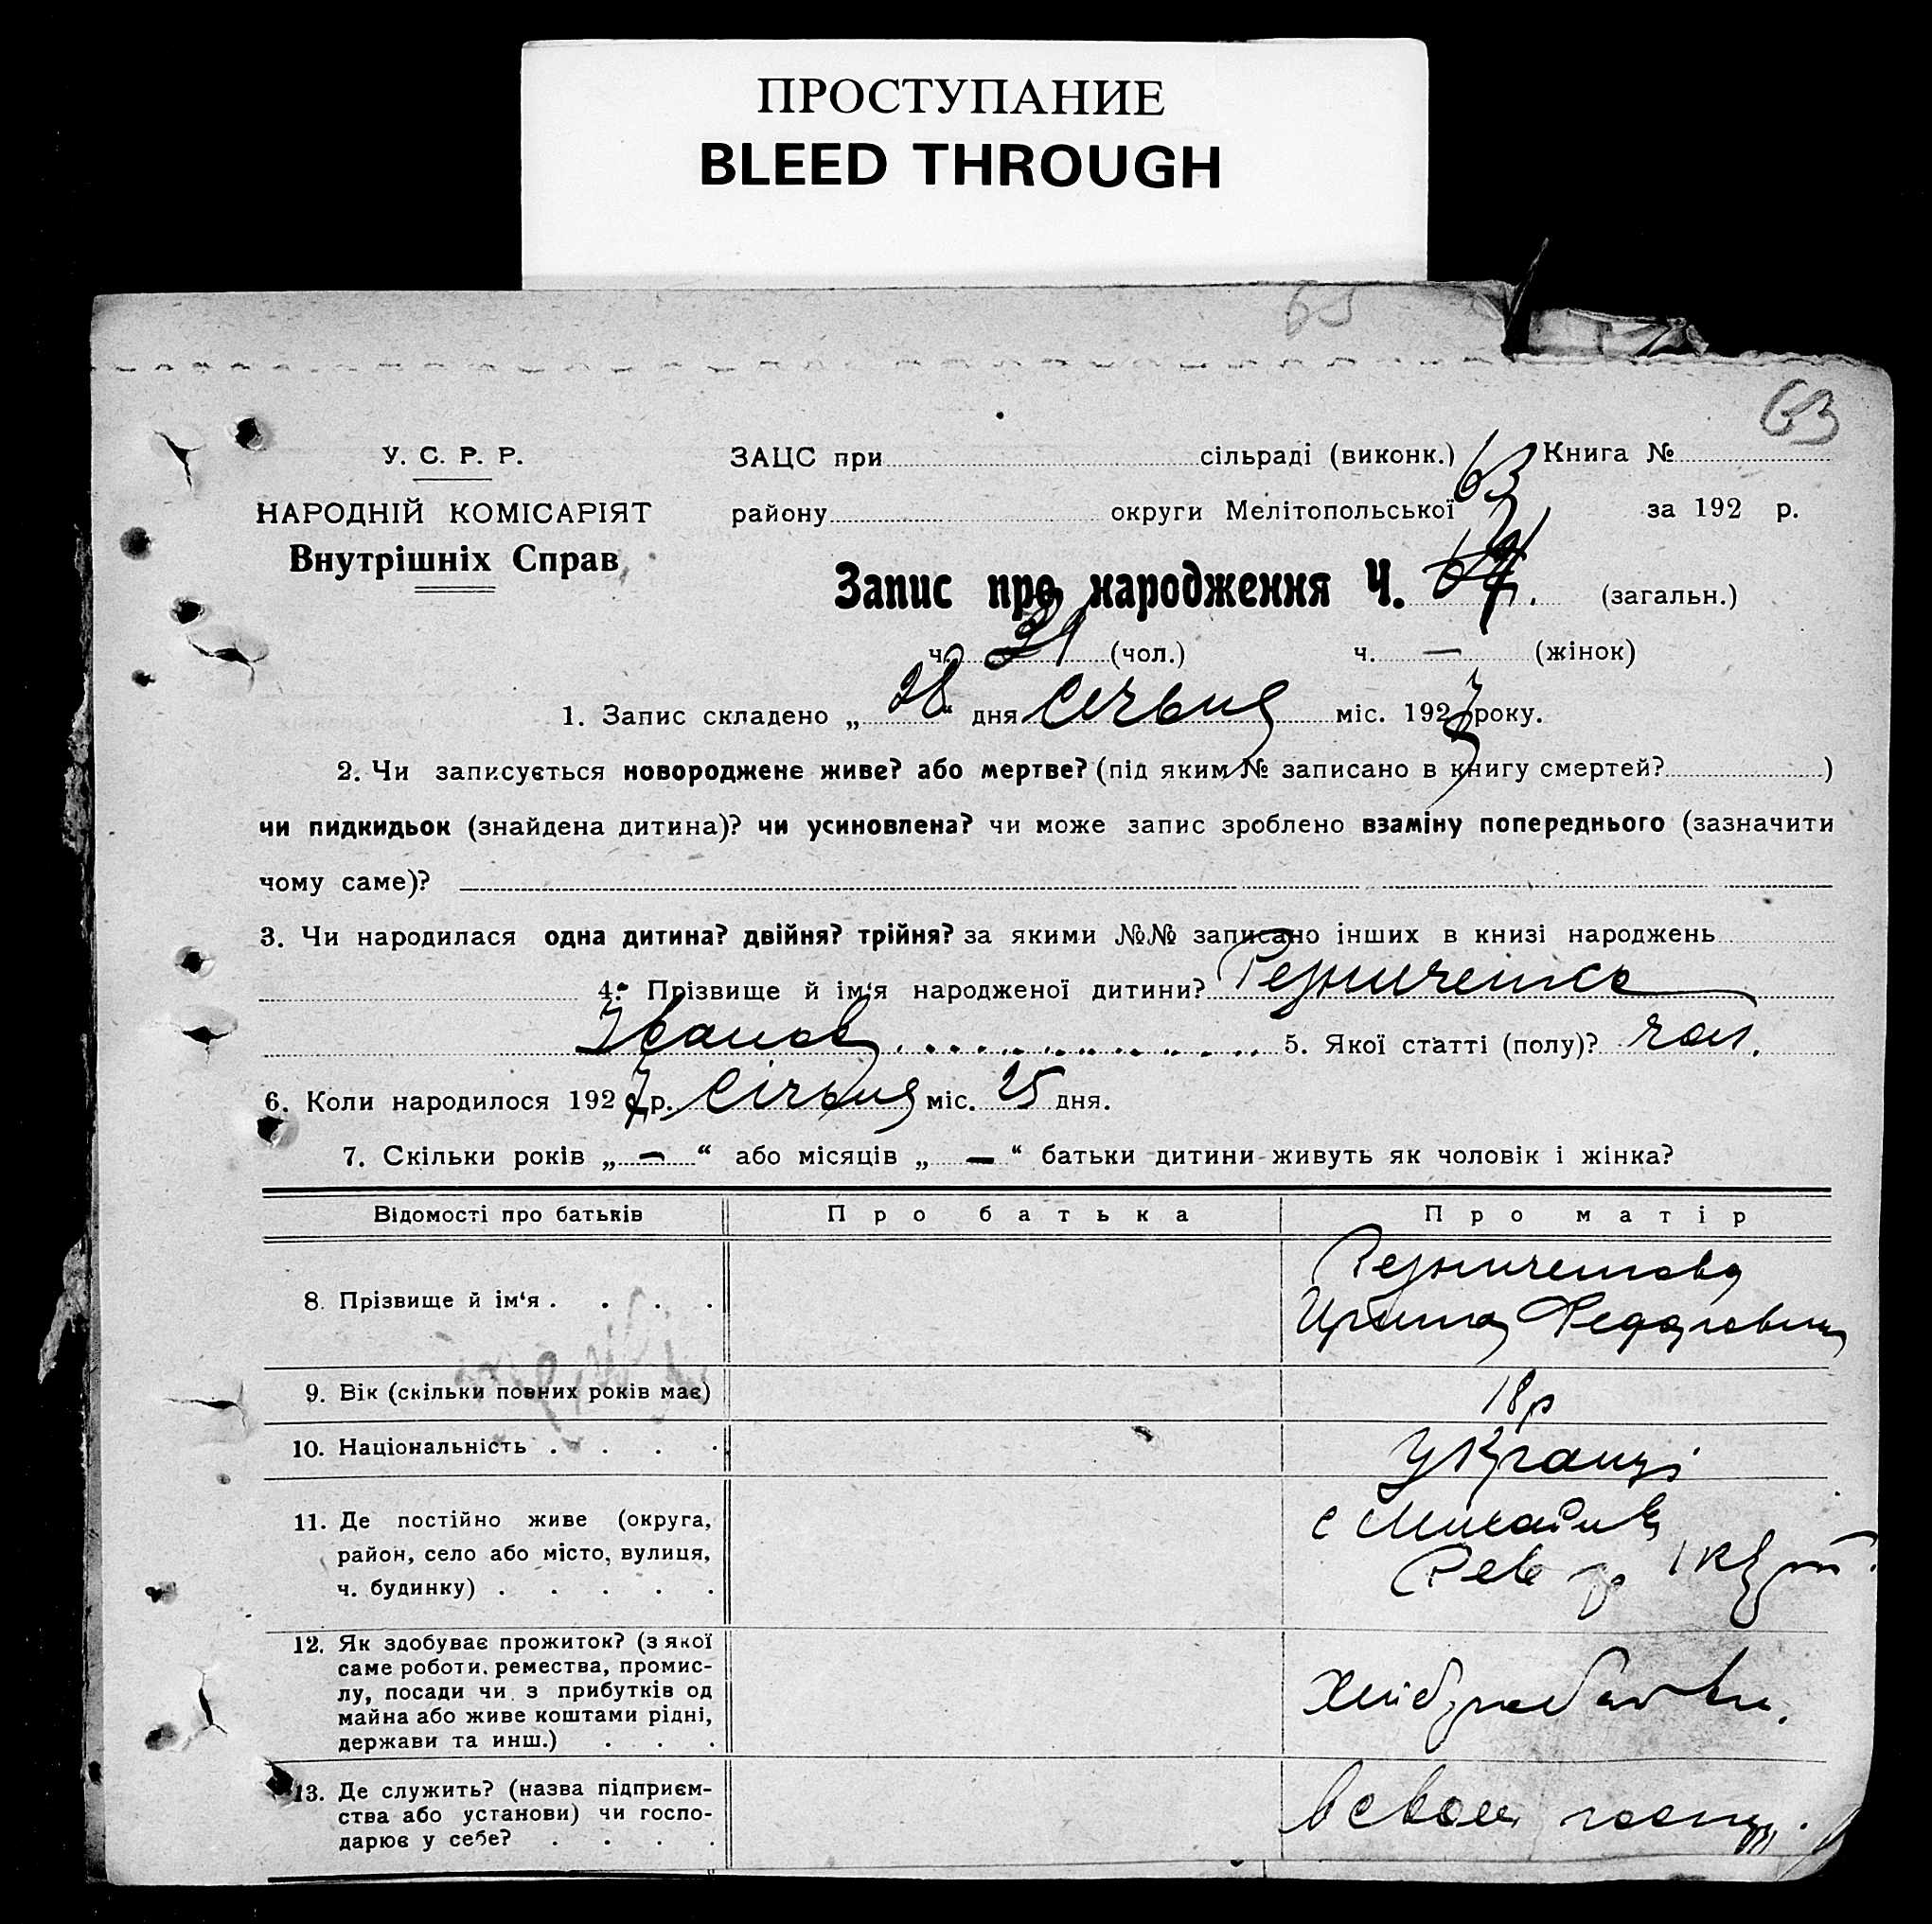 ПРОСТУПАНИЕ
BLEED THROUGH
65
63
У. С. Р. Р.
ЗАЦС при сільраді (виконк.) Книга №
63
НАРОДНІЙ КОМІСАРІЯТ
району округи Мелітопольської за 192 р.
Внутрішніх Справ
Запис про народження Ч. (загальн.)
ч. 31 (чол.) ч. — (жінок)
1. Запис складено „28" дня Січьня міс. 1927 року.
2. Чи записується новороджене живе? або мертве? (під яким № записано в книгу смертей? )
чи пидкидьок (знайдена дитина)? чи усиновлена? чи може запис зроблено взаміну попереднього (зазначити
чому саме)?
3. Чи народилася одна дитина? двійня? трійня? за якими №№ записано інших в книзі народжень
4. Прізвище й ім'я народженої дитини? Резниченко
5. Якої статті (полу)? чол.
6. Коли народилося 1927 р. Січьня міс. 25 дня.
7. Скільки років „ — “ або місяців „ — “ батьки дитини живуть як чоловік і жінка?
Відомості про батьків Про батька Про матір
8. Прізвище й ім'я . . . .
Резниченкова
Федоровна
9. Вік (скільки повних років має) 18 р
10. Національність . . . .
11. Де постійно живе (округа,
район, село або місто, вулиця,
ч. будинку) . . . . .
с
12. Як здобуває прожиток? (з якої
саме роботи, ремества, промис-
лу, посади чи з прибутків од
майна або живе коштами рідні,
держави та инш.) . . .
13. Де служить? (назва підприєм-
ства або установи) чи госпо-
дарює у себе? . . . .
в свом